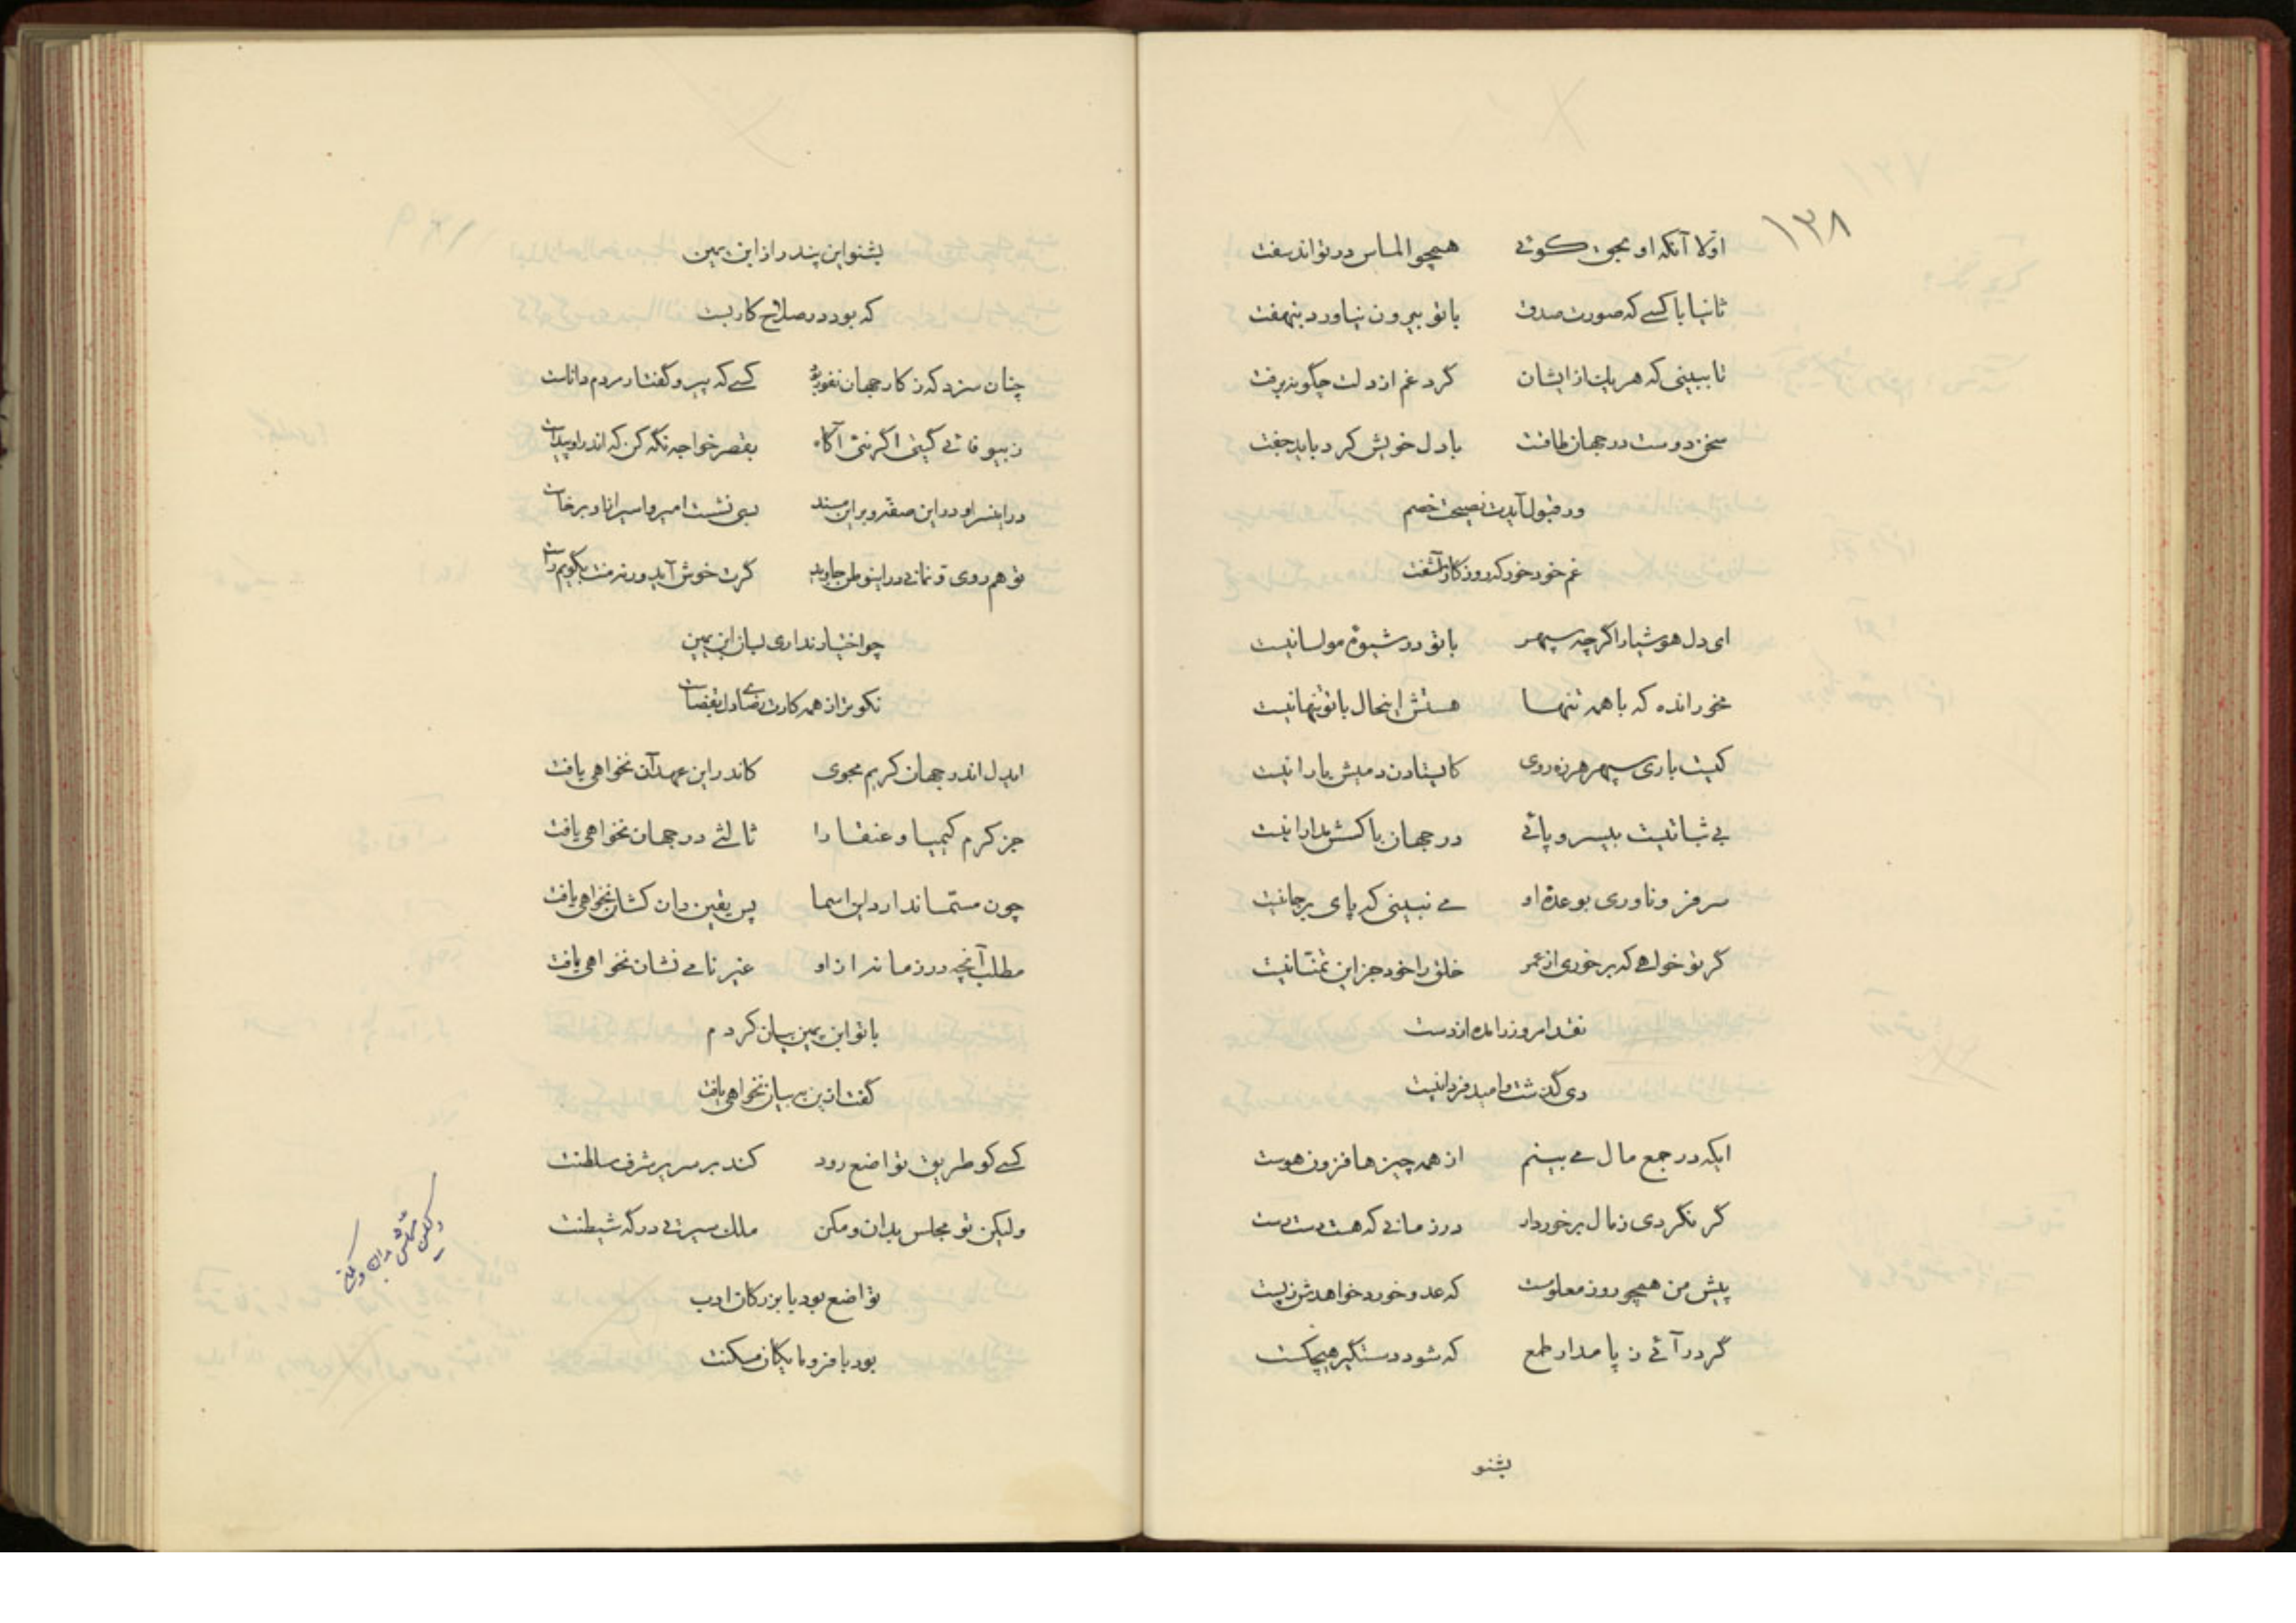 ۱۳۸
اوّلا آنکه او بمجی کوئے همچو الماس در تواند سفت
ثانیا با کسے که صورت صدق با تو بیرون نیاورد بنهفت
تا ببینی که هر یک از ایشان گرد غم از دلت چگونه برفت
سخن دوست در جهان طاقت با دل خویش کرد باید جفت
ور قبول آیدت نصیحت خصم
غم خود خور که روزگار آشفت
ای دل هوشیار اگر چه سپهر با تو در شیوۀ مواسا نیست
مخور انده که با همه تنها هستش اینحال با تو تنها نیست
کیست باری سپهر هرزه روی کایستادن دمیش یارا نیست
بے ثباتیست بیسر و پائے در جهان با کسش مدارا نیست
سر فرو ناوری بوعدۀ او مے نبینی که پای برجا نیست
گر تو خواهے که بر خوری از عمر خلق را خود جز این تمنّا نیست
نقد امروز را مده از دست
دی گذشت و امید فردا نیست
ایکه در جمع مال مے بینم از همه چیزها فزون هوست
گر نگردی ز مال برخوردار در زمانے که هست دست رست
پیش من همچو روز معلومست که عدو خورد خواهدش ز پست
گر در آئے ز پا مدار طمع که شود دستگیر هیچکست
بشنو
بشنو این پند را از ابن یمین
که بود در صلاح کار بست
چنان سزد که ز کار جهان نفور بود کسے که پیرو گفتار مردم داناست
ز بیوفائے گیتی اگر نئی آگاه بقصر خواجه نگه کن که اندر او پیداست
در این سرا و در این صفّه و بر این مسند بسی نشست امیر و اسیر از او برخاست
تو هم روی و نمانے در این وطن جاوید گرت خوش آید ور نه منت بگویم راست
چو اختیار نداری بسان ابن یمین
نکوتر از همه کارت رضای دل بقضاست
ایدل اندر جهان کریم مجوی کاندر این عهد آن نخواهی یافت
جز کرم کیمیا و عنقا را ثالثے در جهان نخواهی یافت
چون مستما ندارد این اسما پس یقین دان کشان نخواهی یافت
مطلب آنچه در زمانه از او غیر نامے نشان نخواهی یافت
با تو ابن یمین بیان کردم
گفت از این به بیان نخواهی یافت
کسے کو طریق تواضع رود کند بر سریر شرف سلطنت
ولیکن تو مجلس بدان و مکن ملک سیرتے در گه شیطنت
ولیکن محلش بدان و مکن
تواضع بود با بزرگان ادب
بود با فرومایگان مسکنت